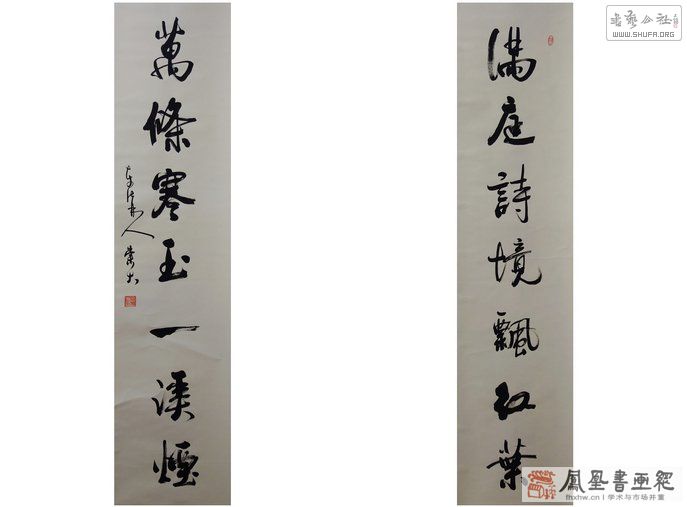 满庭詩境飄红葉
萬條寒玉一溪煙
WWW.SHUFA.ORG
鳳凰書画網
fhxhw.cn | 学术与市场并重